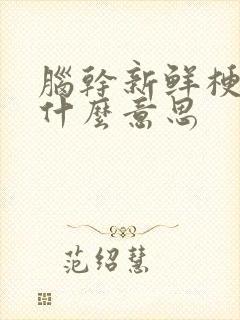 腦幹新鮮梗
什麼意思
范绍慧